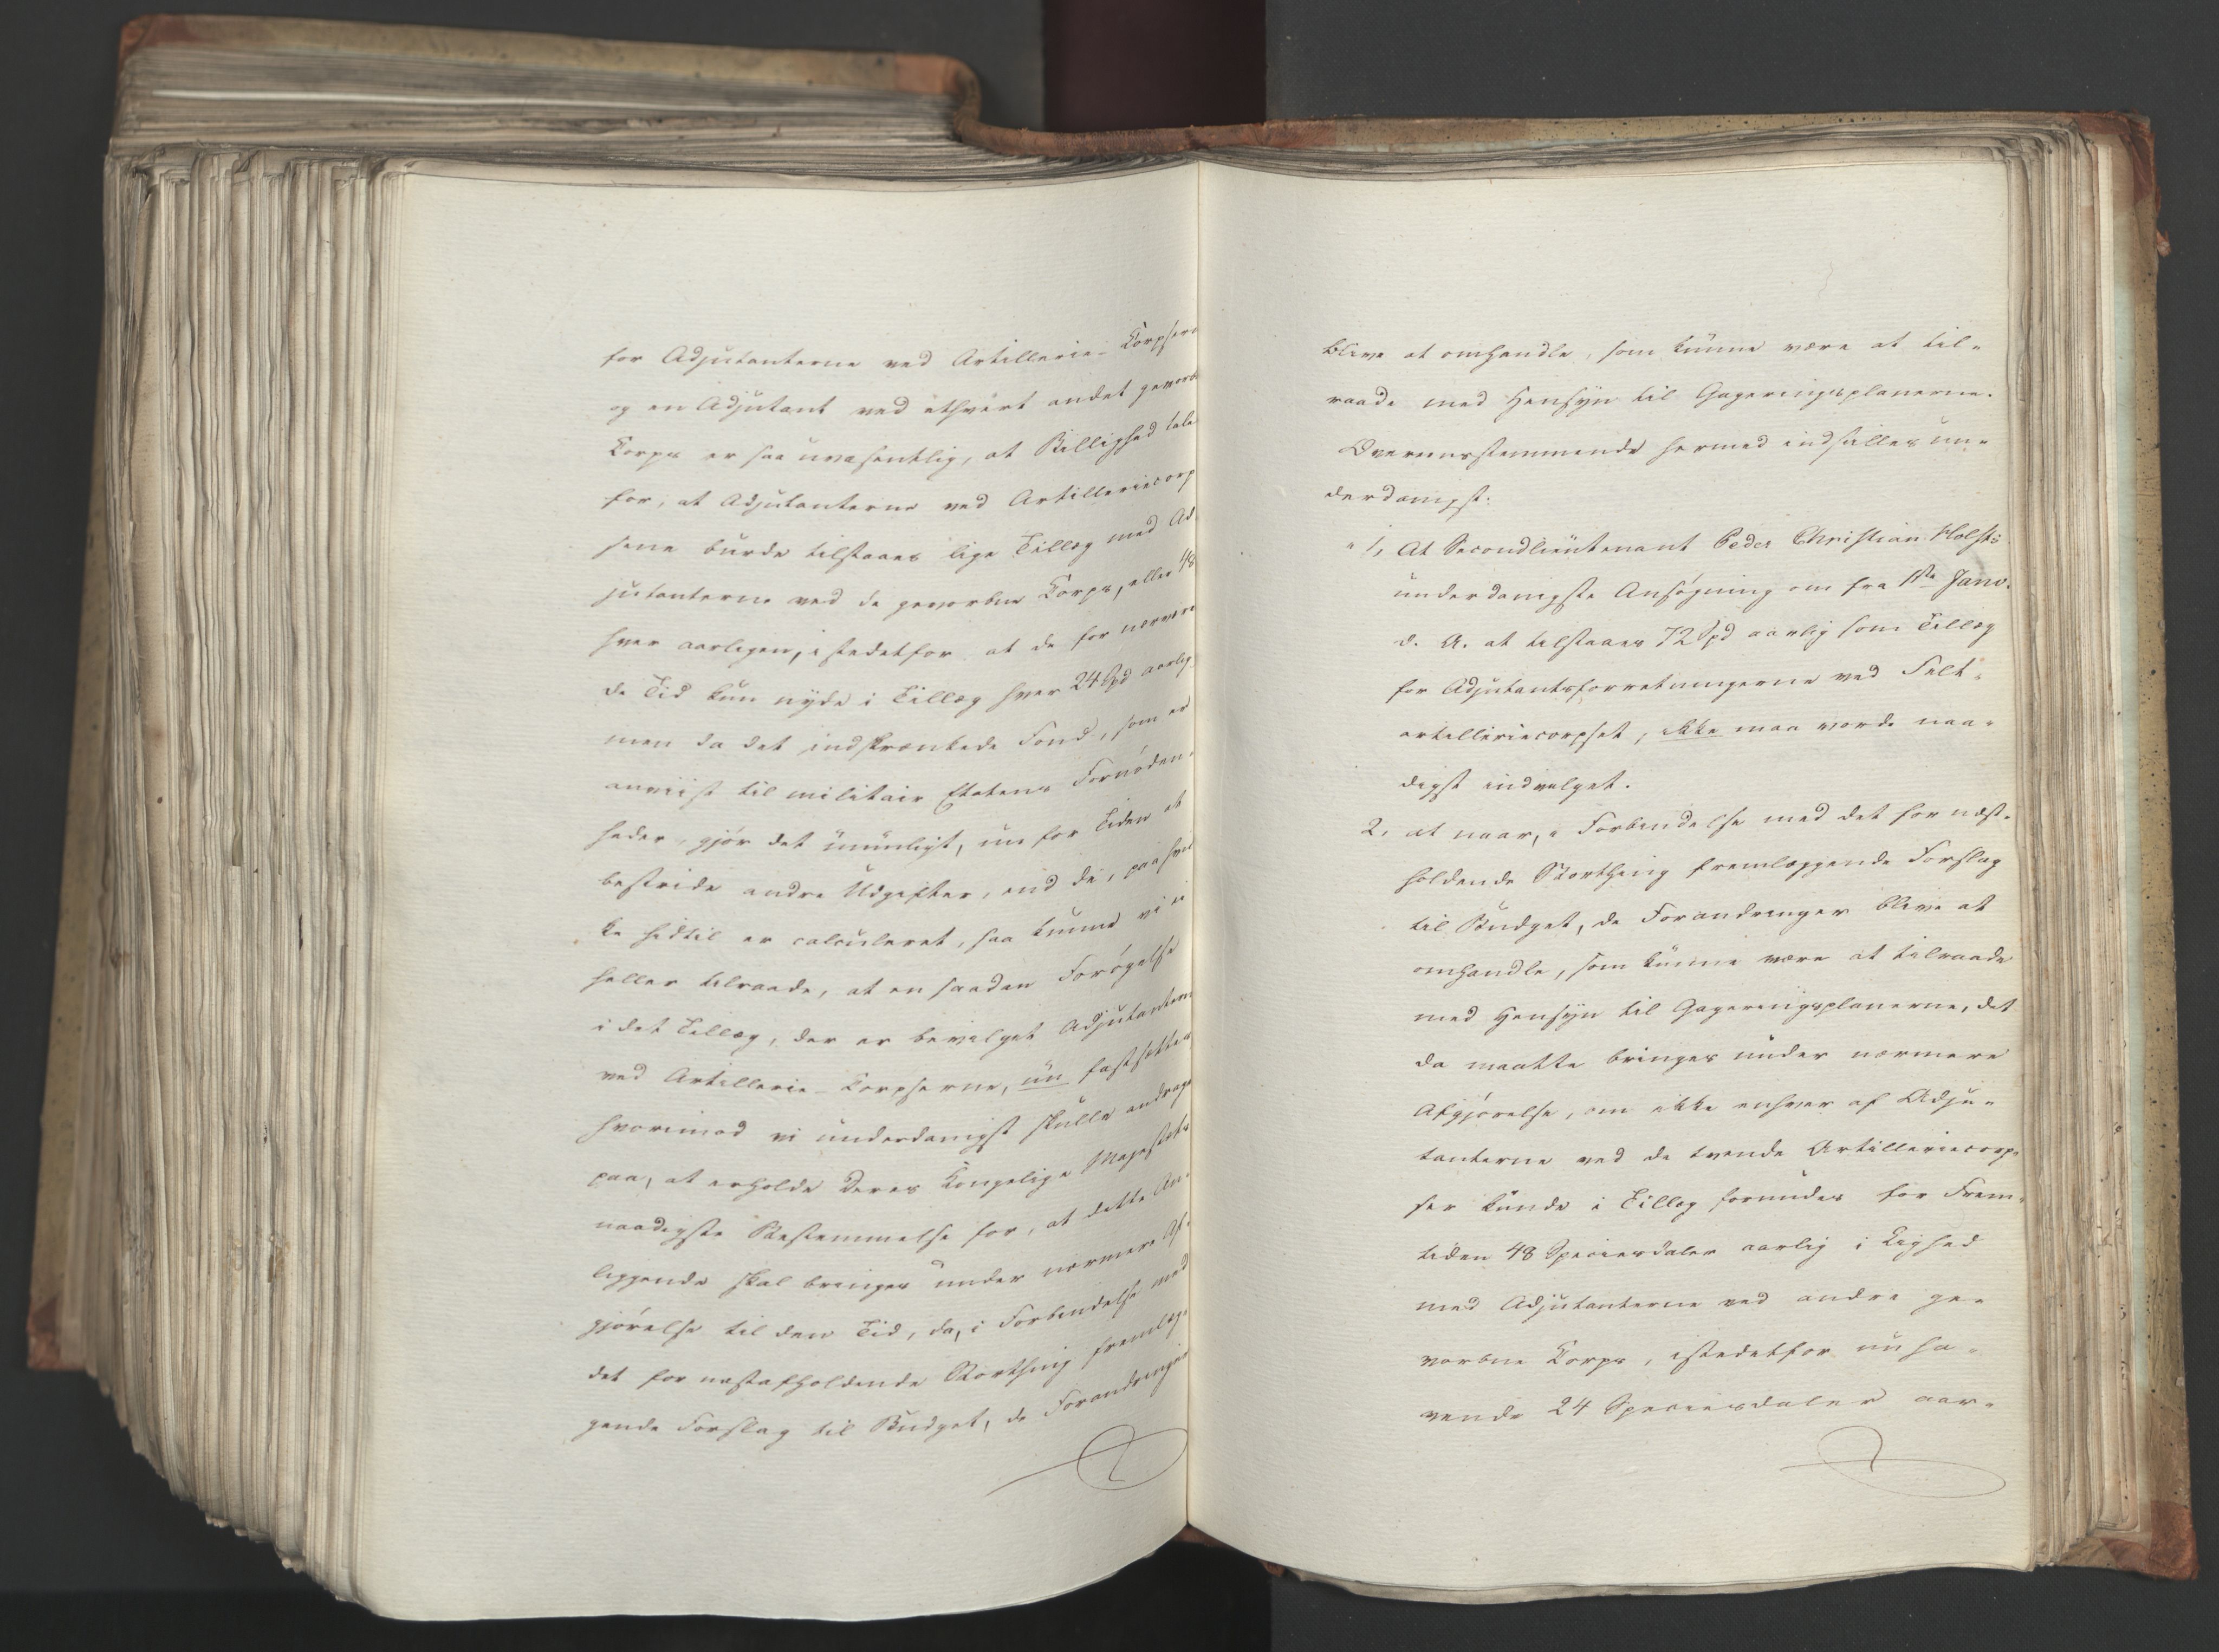 for Adjutanterne ved Artillerie-Corpsern
og en Adjutant ved ethvert andet gevorb
Corps er saa uvæsentlig, at Billighed tale
for, at Adjutanterne ved Artilleriecorp
sene burde tilstaaes lige Tillæg med Ad
jutanterne ved de gevorbne Corps, eller 48
hver aarligen, istedetfor at de for nærvæ
de Tid kun nyde i Tillæg hver 24 Spd aarlig
men da det indskrænkede Fond, som er
anviist til militair Etatens Fornöden-
heder, gjør det umuligt, nu for Tiden at
bestride andre Udgifter, end de, paa hvil
ke hidtil er calculeret, saa kunne vi ei
heller tilraade, at en saadan Forøgelse
i det Tillæg, der er bevilget Adjutantern
ved Artillerie-Corpserne, nu fastsættes
hvorimod vi underdanigst skulle andrage
paa, at erholde Deres Kongelige Majestæts
naadigste Bestemmelse for, at dette An-
liggende skal bringes under nærmere Af-
gjørelse til den Tid, da, i Forbindelse med
det for næstafholdende Storthing fremlæg-
gende Forslag til Budget, de Forandringer
blive at omhandle, som kunne være at til-
raade med Hensyn til Gageringsplanerne.
Overeensstemmende hermed indstilles un-
derdanigst:
"1, At Secondlieutenant Peder Christian Holsts
underdanigste Ansøgning om fra 1ste Janv.
d. A. at tilstaaes 72 Spd aarlig som Tillæg
for Adjutantsforretningerne ved Felt-
artilleriecorpset, ikke maa vorde naa-
digst indvilget.
2, at naar, i Forbindelse med det for næst-
holdende Storthing fremlæggende Forslag
til Budget, de Forandringer blive at
omhandle, som kunne være at tilraade
med Hensyn til Gageringsplanerne, det
da maatte bringes under nærmere
Afgjørelse, om ikke enhver af Adju-
tanterne ved de tvende Artilleriecorp-
ser kunde i Tillæg forundes for Frem-
tiden 48 Speciesdaler aarlig i Lighed
med Adjutanterne ved andre ge-
vorbne Corps, istedetfor nu ha-
vende 24 Speciesdaler aar-